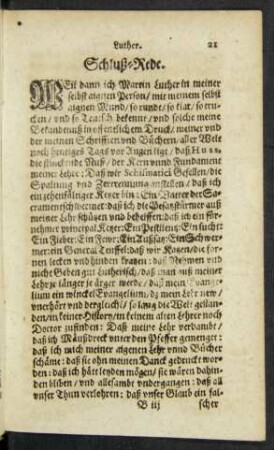 Luther. 21
Schluß-Rede.
WEil dann ich Martin Luther in meiner
selbst aignen Person/ mit meinem selbst
aignen Mund/ so rundt/ so klar/ so tru-
cken/ vnd so Teutsch bekenne/ vnd solche meine
Bekandtnuß in offentlichem Druck/ meiner vnd
der meinen Schrifften vnd Büchern/ aller Welt
noch heutiges Tags vor Augen ligt/ daß
die stinckende Nuß/ der Kern vnnd Fundament
meiner Lehre: Daß wir Schismatici Gesellen/ die
Spaltung vnd Zertrennung anstellen/ daß ich
ein zehenfältiger Ketzer bin: Ein Vatter der Sa-
cramentschwermer: daß ich die Besatzstürmer auß
meiner Lehr schützen vnd behelffen: daß ich ein für-
nehmer principal Ketzer: Ein Pestilentz: Ein sucht:
Ein Fieber: Ein Fewr: Ein Aussatz: Ein Schwer-
mer: ein General Teuffel: daß wir Katzen/ die for-
nen lecken vnd hinden kratzen: daß Nehmen vnd
nicht Geben gut Lutherisch/ daß man auß meiner
Lehr je länger je ärger werde/ daß mein Evan-
gelium ein winckel Evangelium/ daß mein Lehr new/
vnerhört vnd dergleichs/ so lang die Welt gestan-
den/ in keiner History/ in keinem alten Lehrer noch
Doctor zufinden: Daß meine Lehr verdambt/
daß ich Mäußdreck vnter den Pfeffer gemenget:
daß ich mich meiner aignen Lehr vnnd Bücher
schäme: daß sie ohn meinen Danck gedruckt wor-
den: daß ich hätt leyden mögen/ sie wären dahin-
den bliben/ vnd allesambt vndergangen: daß all
vnser Thun verlohren: daß vnser Glaub ein fal-
B iij scher